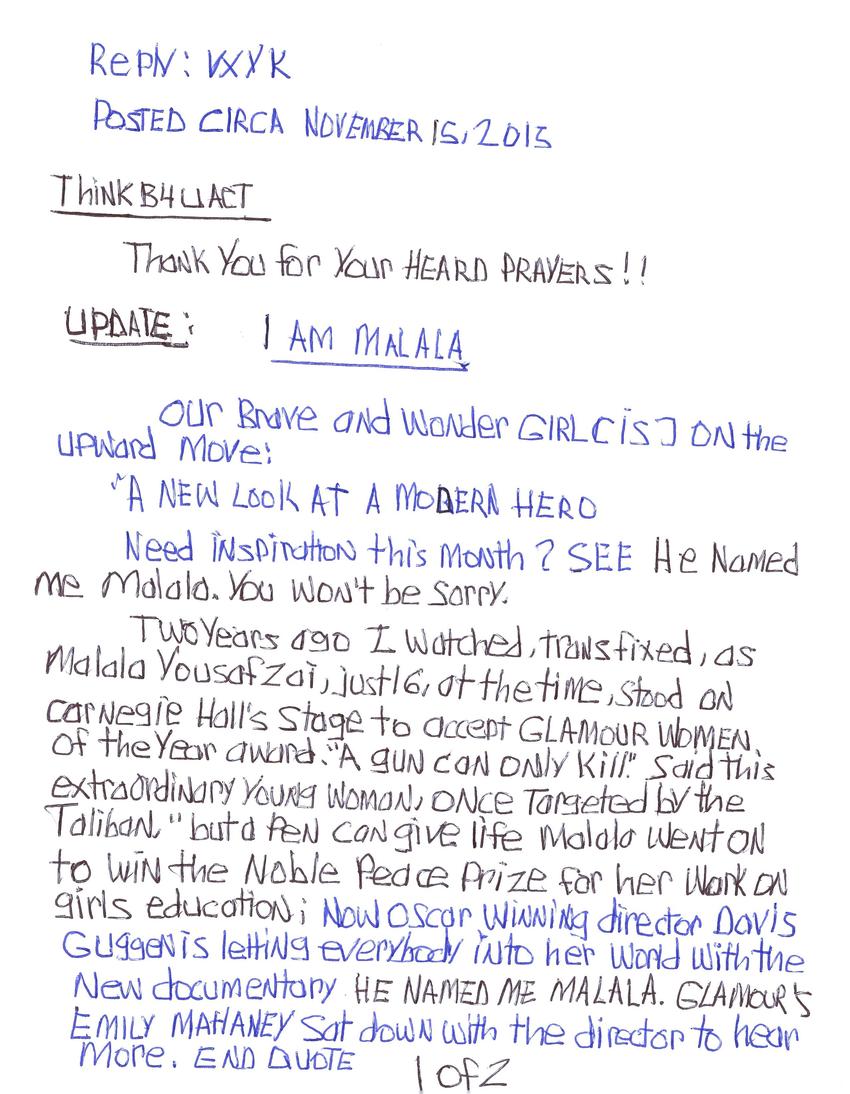 RePlY: VXYK
POSTED CIRCA NOVEMBER 15, 2015
ThiNK B4 U ACT
Thank You for Your HEARD PRAYERS!!
UPDATE: I AM MALALA
OUR Brave and Wonder GIRL [is] ON the
UPWard Move:
"A NEW LOOK AT A MODERN HERO
Need iNspiration this Month? SEE He Named
me Malala. You WON't be Sorry.
TWO Years ago I Watched, transfixed, as
Malala Yousafzai, just 16, at the time, stood on
Carnegie Hall's Stage to accept GLAMOUR WOMEN.
Of the Year award. "A gun can ONLY Kill." Said this
extraordinary Young Woman, ONCE Targeted by the
Taliban, "but a Pen can give life Malala WENT ON
to WiN the Noble Peace Prize for her Work on
girls education; NOW Oscar Winning director Davis
Guggen is letting everybody into her World with the
New documentary HE NAMED ME MALALA. GLAMOUR's
EMILY MAHANEY Sat down with the director to hear
More. END QUOTE
1 of 2